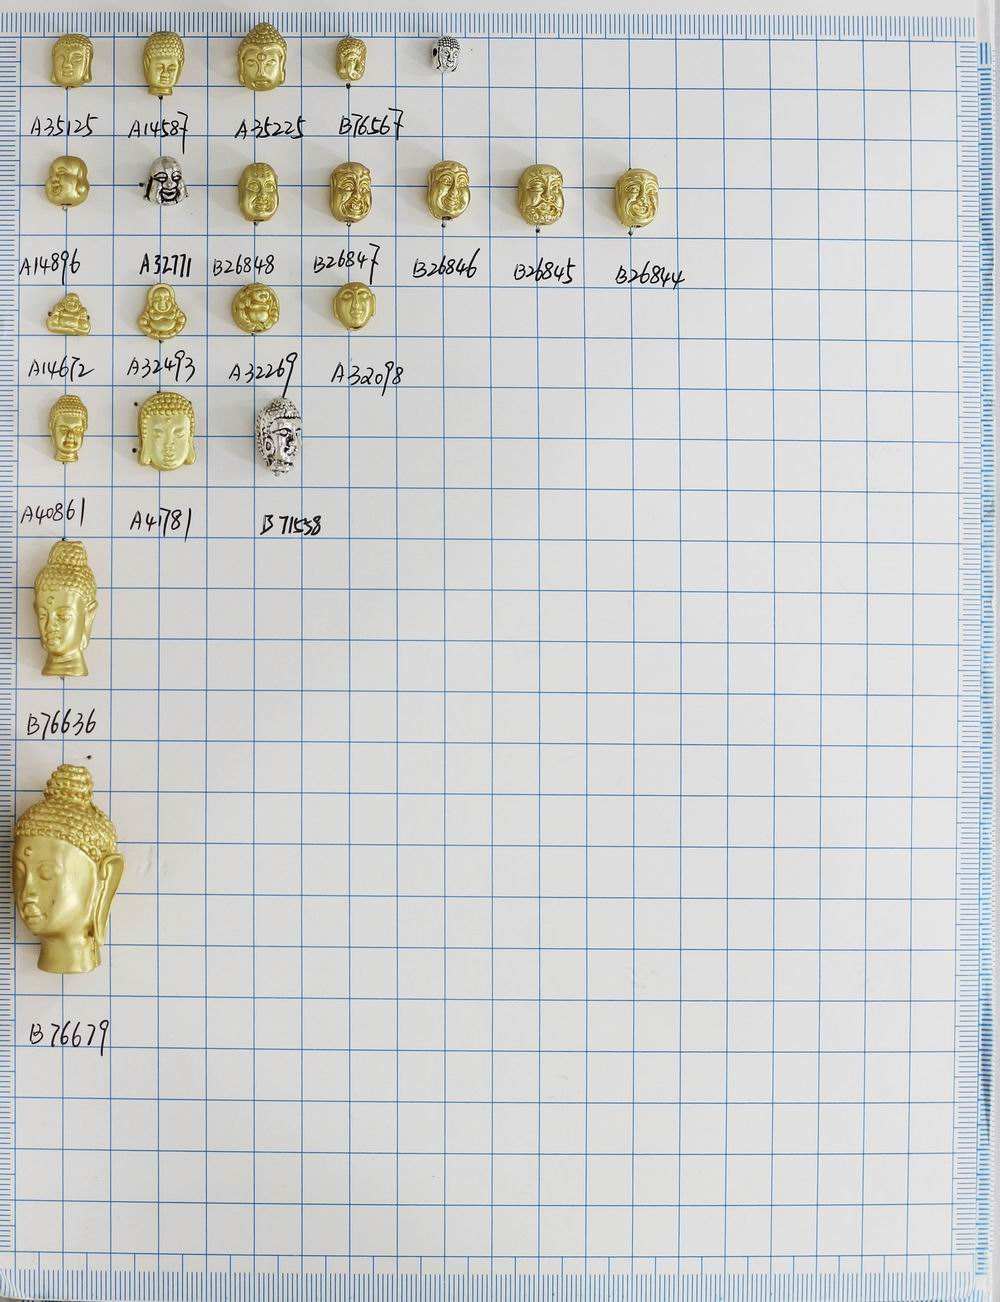 A35125 A14587 A35225 B76567
A14896 A32771 B26848 B26847 B26846 B26845 B26844
A14672 A32493 A32269 A32098
A40861 A41781 B71558
B76636
B76679